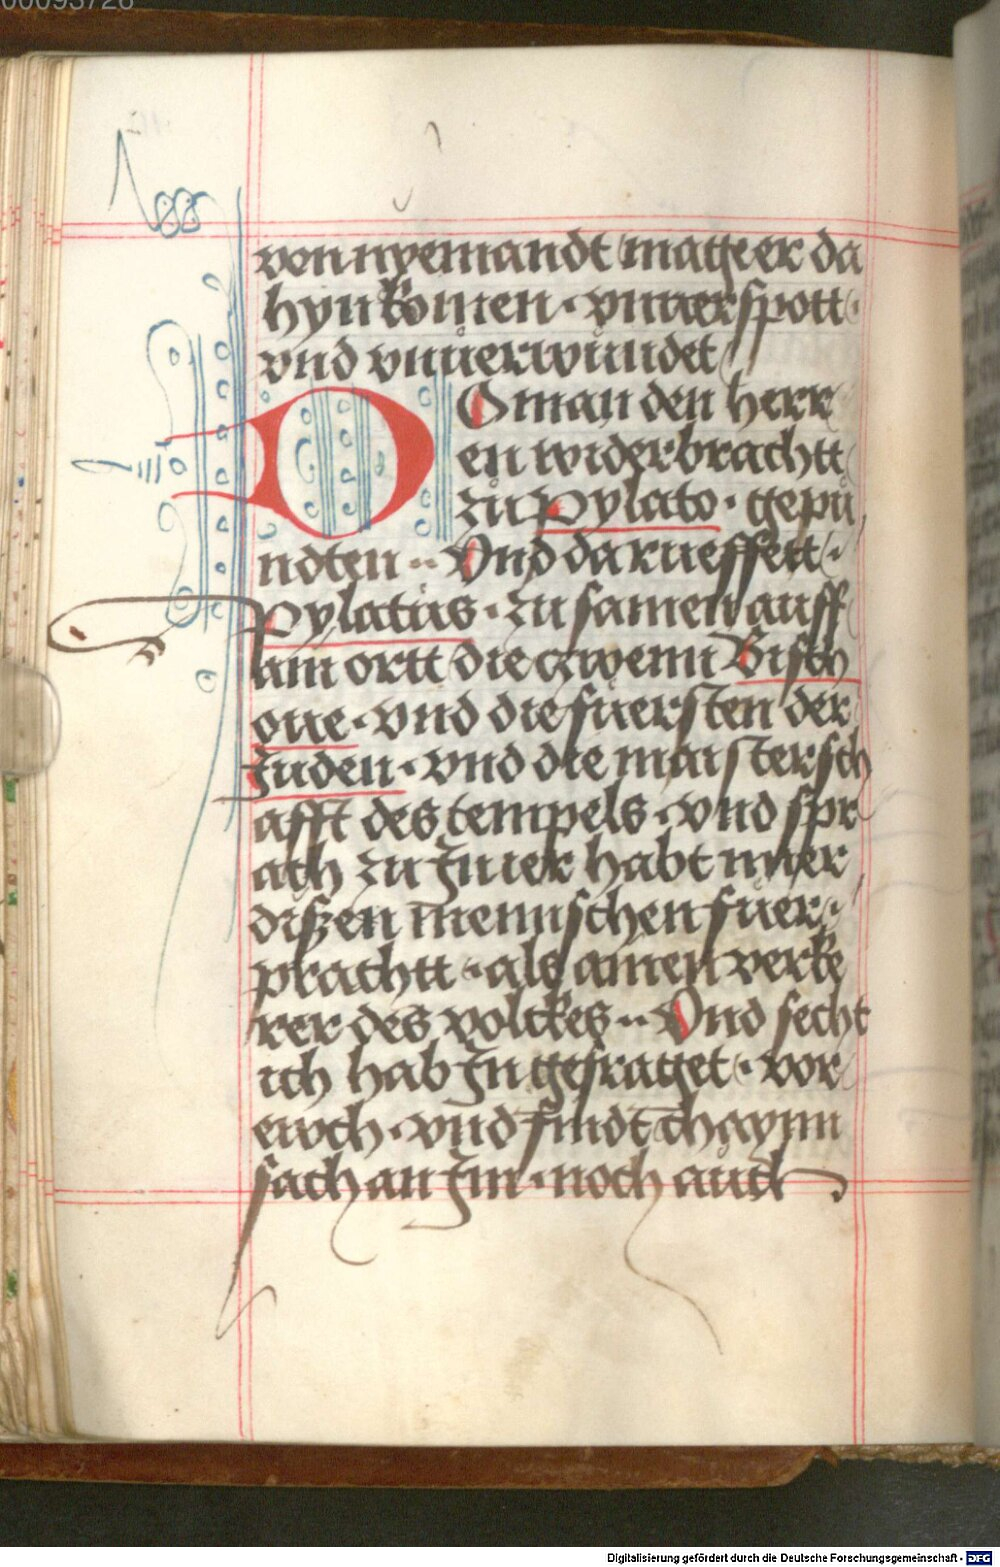 00093726
von nyemandt mag er da
hyn komen · vnuerspott ·
vnd vnuerwundet
DO man den herr
en widerbrachtt
zu Pylato · gepu
ndten ·· Vnd da rueffett ·
Pylatus · zu samen auff
ain ortt die zwenn Bisch
oue · vnd die fuersten der
Juden · vnd die maistersch
afft des tempels · vnd spr
ach zu In ier habt mier
diszen mennschen fuer ·
prachtt · als ainen verke
rer des volckes ·· Vnd secht
ich hab In gefraget · vor
ewch · vnd findt chaynn
sach an Im · noch auch
Digitalisierung gefördert durch die Deutsche Forschungsgemeinschaft - DFG